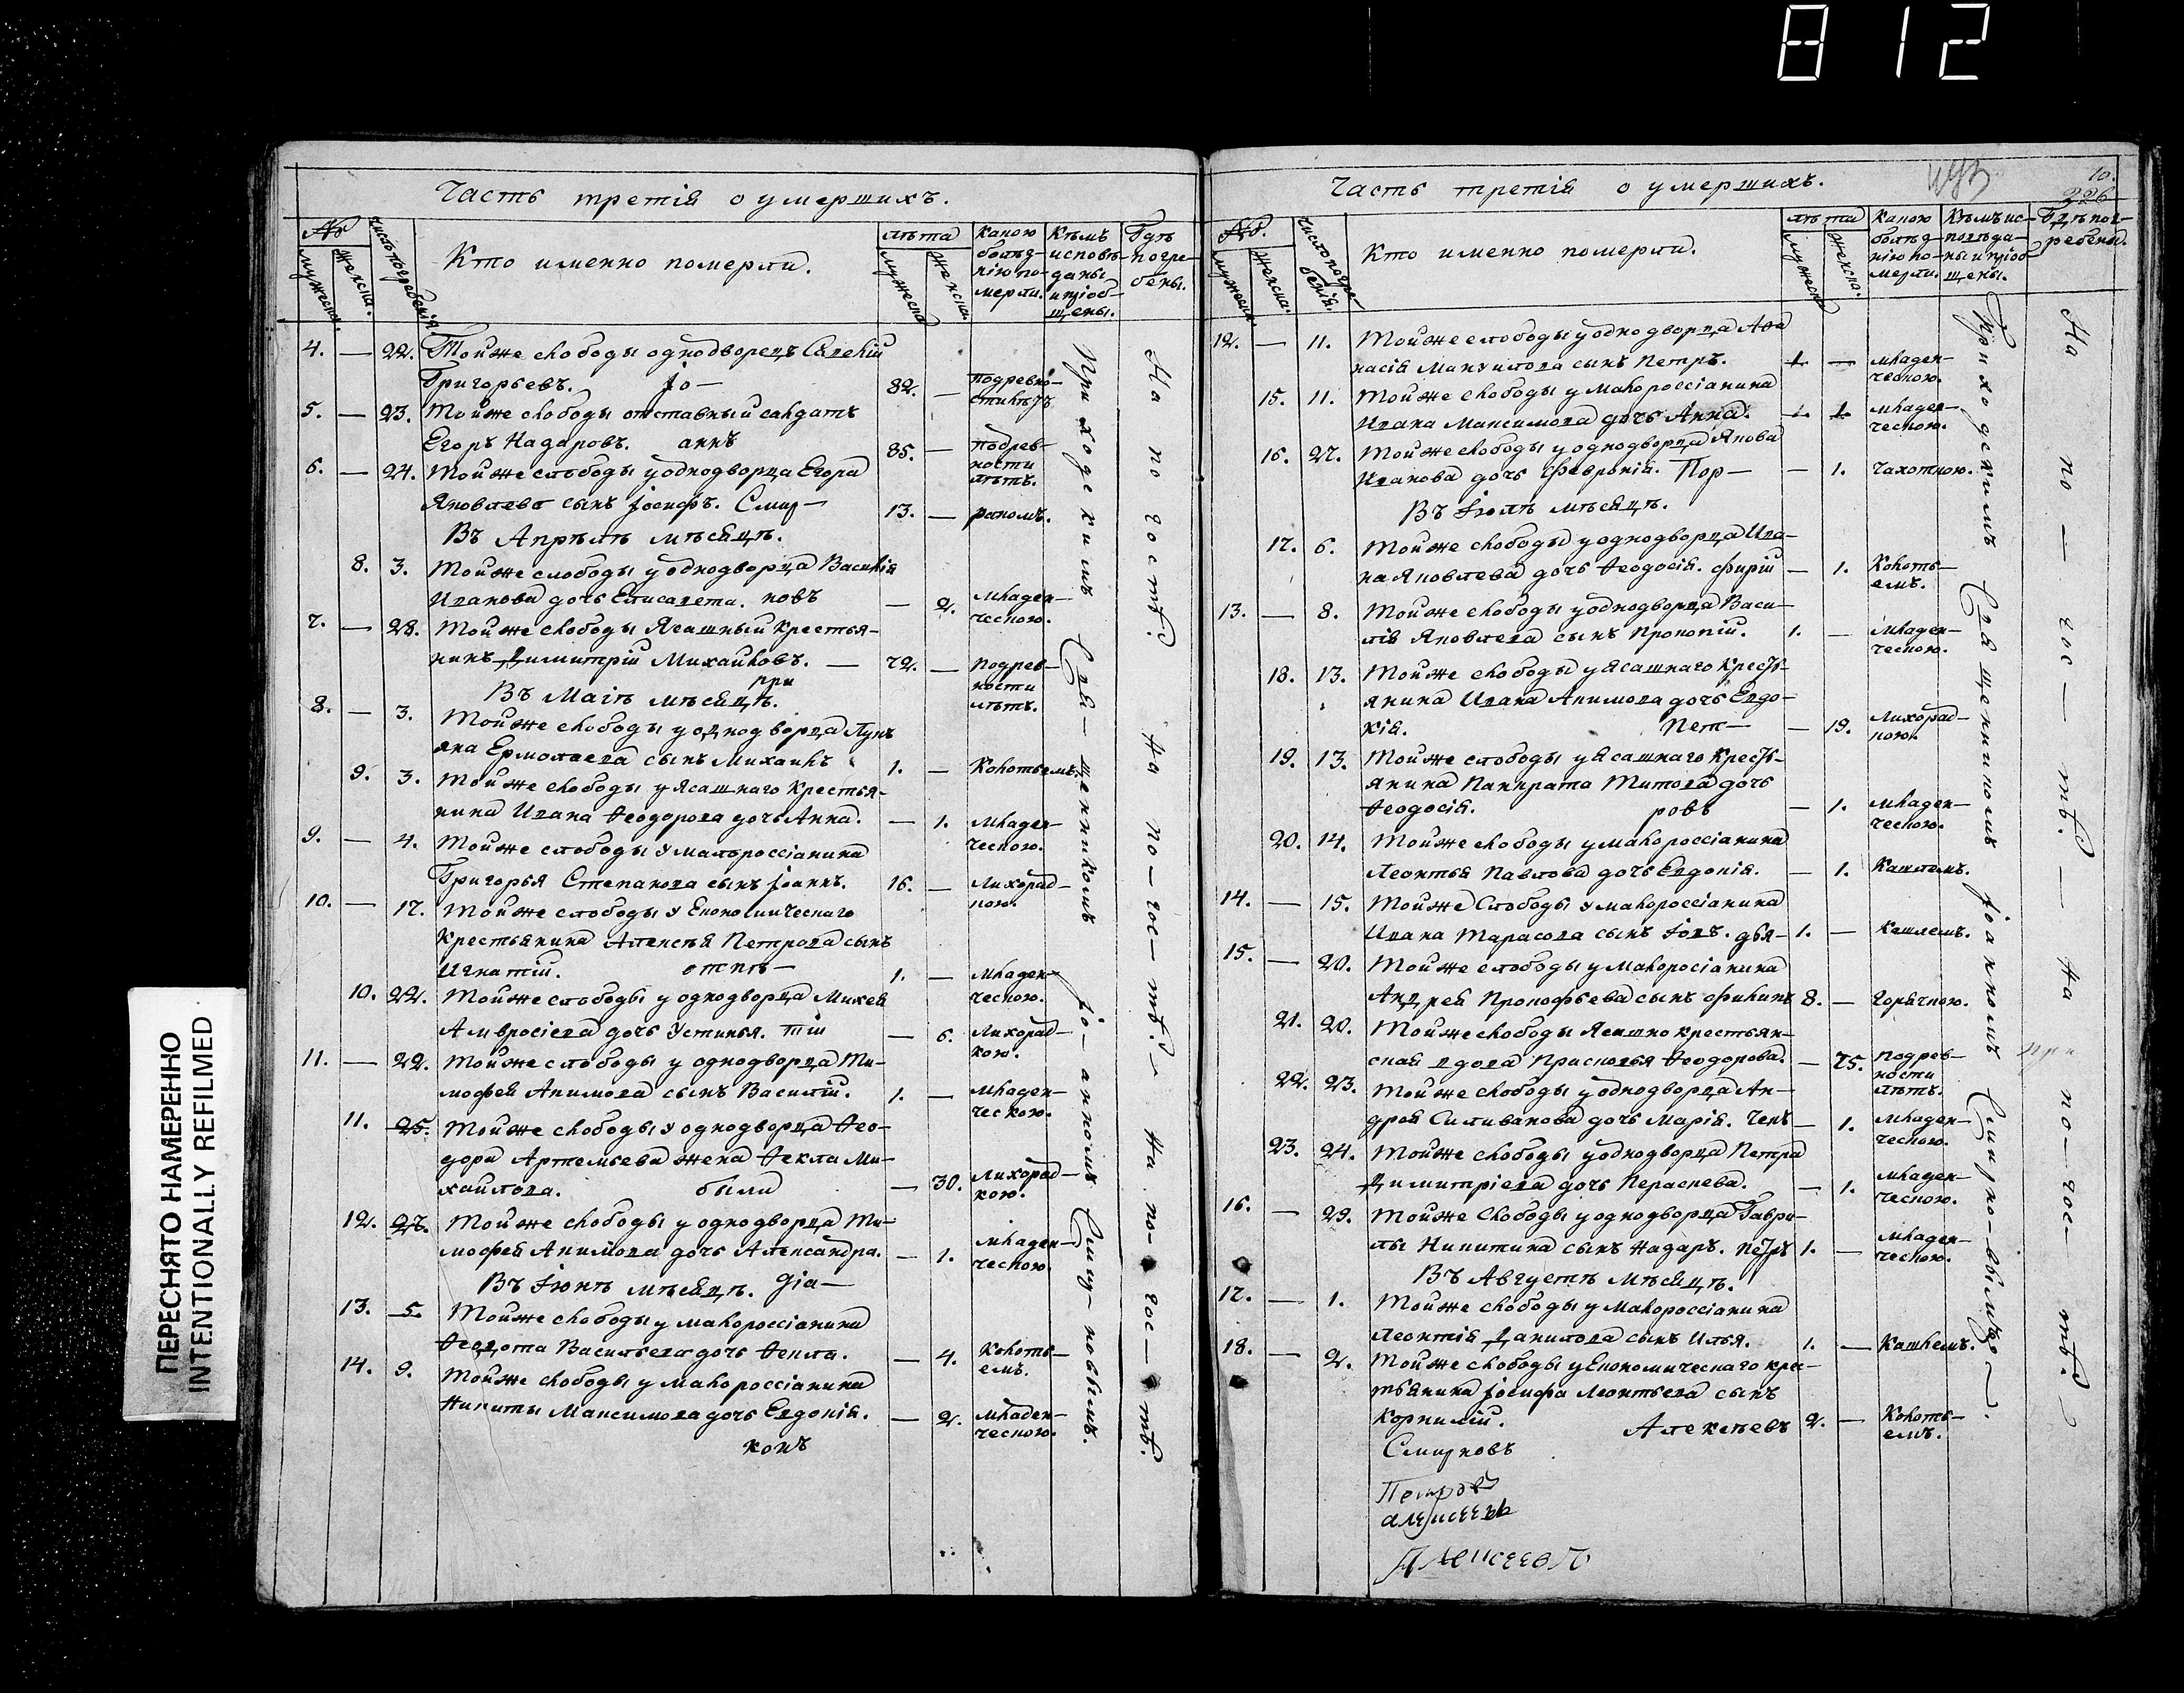 812
ПЕРЕСНЯТО НАМЕРЕННО
INTENTIONALLY REFILMED
Часть третія о умершихъ.
№
мужеска.
женска.
число погребенія.
Кто именно померли.
лѣта
мужеска
женска.
какою болѣз-
нію по-
мерли.
Кѣмъ
исповѣ-
даны
и пріоб-
щены.
Гдѣ
погре-
бены.
4. — 22. Тойже слободы однодворецъ Савелій
Григорьевъ. Jо— 82. — подревно-
сти лѣтъ
5. — 23. Тойже слободы отставный салдатъ
Егоръ Назаровъ. аннъ 85. — подрев-
ности
лѣтъ.
6. — 24. Тойже слободы уоднодворца Егора
Яковлева сынъ Jосифъ. Смир— 13. — ракомъ.
Въ Апрѣлѣ мѣсяцѣ.
8. 3. Тойже слободы уоднодворца Василія
Иванова дочь Елисавета. новъ — 2. Младен-
ческою.
7. — 28. Тойже слободы Ясашный крестья-
нинъ Димитрій Михайловъ. — 72. — подрев-
ности
лѣтъ.
при
Въ Маіѣ мѣсяцѣ.
8. — 3. Тойже слободы уоднодворца Лукь
яна Ермолаева сынъ Михаилъ 1. — Колотьемъ.
9. 3. Тойже слободы уЯсашнаго крестья-
нина Ивана Ѳеодорова дочь Анна. — 1. Младен-
ческою.
9. — 4. Тойже слободы умалороссіанина
Григорья Степанова сынъ Jоаннъ. 16. — Лихорад-
кою.
10. — 17. Тойже слободы у Економическаго
крестьянина Алексѣя Петрова сынъ
Игнатій. отпѣ— 1. — Младен-
ческою.
10. 22. Тойже слободы у однодворца Михея
Амвросіева дочь Устинья. тіи — 6. Лихорад-
кою.
11. — 22. Тойже слободы у однодворца Ти-
мофея Акимова сынъ Василій. 1. — Младен-
ческою.
11. 25. Тойже слободы у однодворца Ѳео-
дора Артемьева жена Ѳекла Ми-
хайлова. были — 30. Лихорад-
кою.
12. 27. Тойже слободы у однодворца Ти-
мофея Акимова дочь Александра. — 1. Младен-
ческою.
Въ Jюнѣ мѣсяцѣ. діа—
13. 5. Тойже слободы у малороссіанина
Ѳедота Васильева дочь Ѳекла. — 4. Колоть-
емъ.
14. 9. Тойже слободы у малороссіанина
Никиты Максимова дочь Евдокія. — 2. Младен-
ческою.
конъ
Приходскимъ Свя— щенникомъ Jо— анномъ Смир— новымъ.
На погостѣ. На по— гос— тѣ. На по— гос— тѣ.
Часть третія о умершихъ.
10.
226
№.
мужеска.
женска.
число погре-
бенія.
Кто именно померли.
лѣта
мужеска
женска.
какою
болѣз-
нію по-
мерли.
Кѣмъ ис-
повѣда-
ны и пріоб
щены.
Гдѣ пог-
ребены.
12. — 11. Тойже слободы уоднодворца Аѳа
насія Мануилова сынъ Петръ. 1. — младен-
ческою.
15. 11. Тойже слободы у малороссіанина
Ивана Максимова дочь Анна. — 1. младен-
ческою.
16. 27. Тойже слободы уоднодворца Якова
Иванова дочь Февронія. Пор— — 1. чахоткою.
Въ Jюлѣ мѣсяцѣ.
17. 6. Тойже слободы уоднодворца Ива-
на Яковлева дочь Ѳеодосія. фирій — 1. Колоть-
емъ.
13. — 8. Тойже слободы уоднодворца Васи-
лія Яковлева сынъ Прокопій. 1. — Младен-
ческою.
18. 13. Тойже слободы уЯсашнаго Кресть-
янина Ивана Акимова дочь Евдо-
кія. Пет— — 19. Лихорад-
кою.
19. 13. Тойже слободы уЯсашнаго Кресть-
янина Панкрата Титова дочь
Ѳеодосія. ровъ — 1. Младен-
ческою.
20. 14. Тойже слободы умалороссіанина
Леонтья Павлова дочь Евдокія. — 1. Кашлемъ.
14. — 15. Тойже Слободы у малороссіанина
Ивана Тарасова сынъ Jовъ. дья— 1. — Кашлемъ.
15. — 20. Тойже слободы у Малоросіанина
Андрея Прокофьева сынъ Филипъ 8. — Горячкою.
21. 20. Тойже слободы Ясашно крестьян-
ская вдова Прасковья Ѳеодорова. — 75. подрев-
ности
лѣтъ.
22. 23. Тойже слободы уоднодворца Ан-
дрея Силиванова дочь Марія. чекъ — 1. Младен-
ческою.
23. 24. Тойже слободы уоднодворца Петра
Димитріева дочь Пераскева. — 1. Младен-
ческою.
16. — 29. Тойже Слободы уоднодворца Гаври-
лы Никитина сынъ Назаръ. Петръ 1. — Младен-
ческою.
Въ Августѣ Мѣсяцѣ.
17. — 1. Тойже слободы у Малороссіанина
Леонтія Данилова сынъ Илья. 1. — Кашлемъ.
18. — 2. Тойже слободы уЕкономическаго крес-
тьянина Jосифа Леонтьева сынъ
Корнилій. Алексѣевъ 2. — Колоть-
емъ.
Смирновъ
Петровъ
Алексеевъ
Алексеевъ
Приходскимъ Священникомъ Jоанномъ Смирно— вымъ.
На по — гос — тѣ. — На по— гос— тѣ.
при